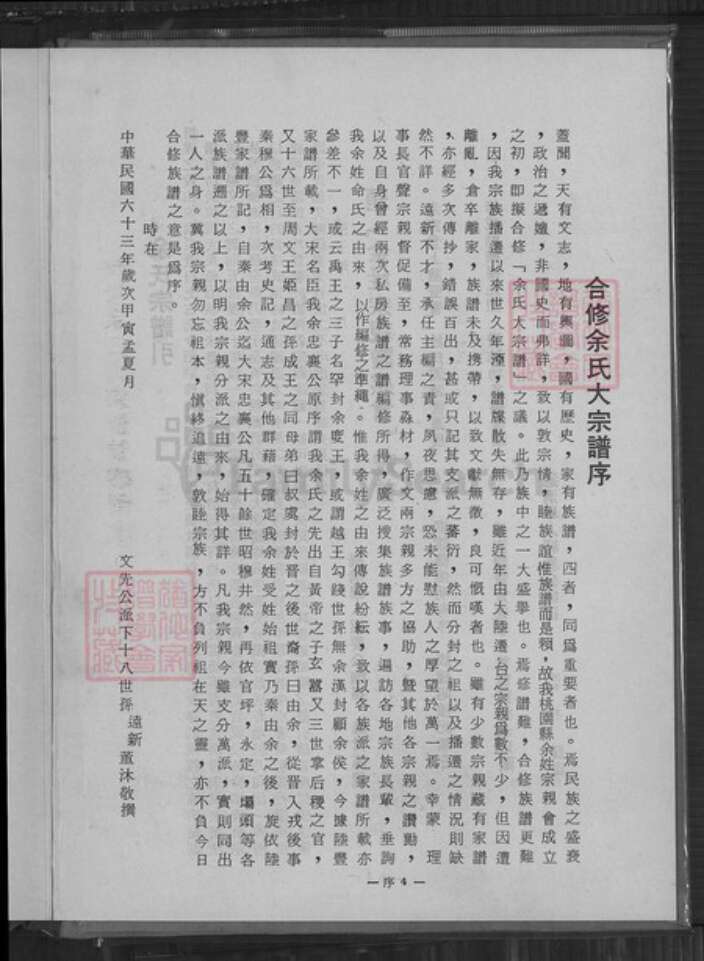 合修余氏大宗譜序
蓋聞，天有文志，地有輿圖，國有歷史，家有族譜，四者，同爲重要者也。焉民族之盛衰
，政治之遞嬗，非國史而弗詳，致以敦宗情，睦族誼惟族譜而是賴，故我桃園縣余姓宗親會成立
之初，即擬合修「余氏大宗譜」之議。此乃族中之一大盛擧也。焉修譜難，合修族譜更難
，因我宗族播遷以來世久年湮，譜牒散失無存，雖近年由大陸遷台之宗親爲數不少，但因遭
離亂，倉卒離家，族譜未及携帶，以致文獻無徵，良可慨嘆者也。雖有少數宗親藏有家譜
，亦經多次傳抄，錯誤百出，甚或只記其支派之蕃衍，然而分封之祖以及播遷之情況則缺
然不詳。遠新不才，承任主編之責，夙夜思慮，恐未能慰族人之厚望於萬一焉。幸蒙　理
事長官聲宗親督促備至，常務理事淼材，作文兩宗親多方之協助，曁其他各宗親之讚勳，
以及自身曾經兩次私房族譜之譜編修所得，廣泛搜集族譜族事，遍訪各地宗族長輩，垂詢
我余姓命氏之由來，以作編修之準繩。惟我余姓之由來傳說紛紜，致以各族派之家譜所載亦
參差不一，或云禹王之三子名罕封余麥王，或謂越王勾踐世孫無余漢封顧余侯，今據陸豐
家譜所載，大宋名臣我余忠襄公原序謂我余氏之先出自黃帝之子玄囂又三世掌后稷之官，
又十六世至周文王姬昌之孫成王之同母弟曰叔虞封於晉之後世裔孫曰由余，從晉入戎後事
秦穆公爲相，次考史記，通志及其他群籍，確定我余姓受姓始祖實乃秦由余之後，旋依陸
豐家譜所記，自秦由余公迄大宋忠襄公凡五十餘世昭穆井然，再依官坪，永定，塲頭等各
派族譜遡之以上，以明我宗親分派之由來，始得其詳。凡我宗親今雖支分萬派，實則同出
一人之身。冀我宗親勿忘祖本，愼終追遠，敦睦宗族，方不負列祖在天之靈，亦不負今日
合修族譜之意是爲序。
時在
中華民國六十三年歲次甲寅孟夏月
文先公派下十八世孫　遠新　董沐敬撰
—序4—